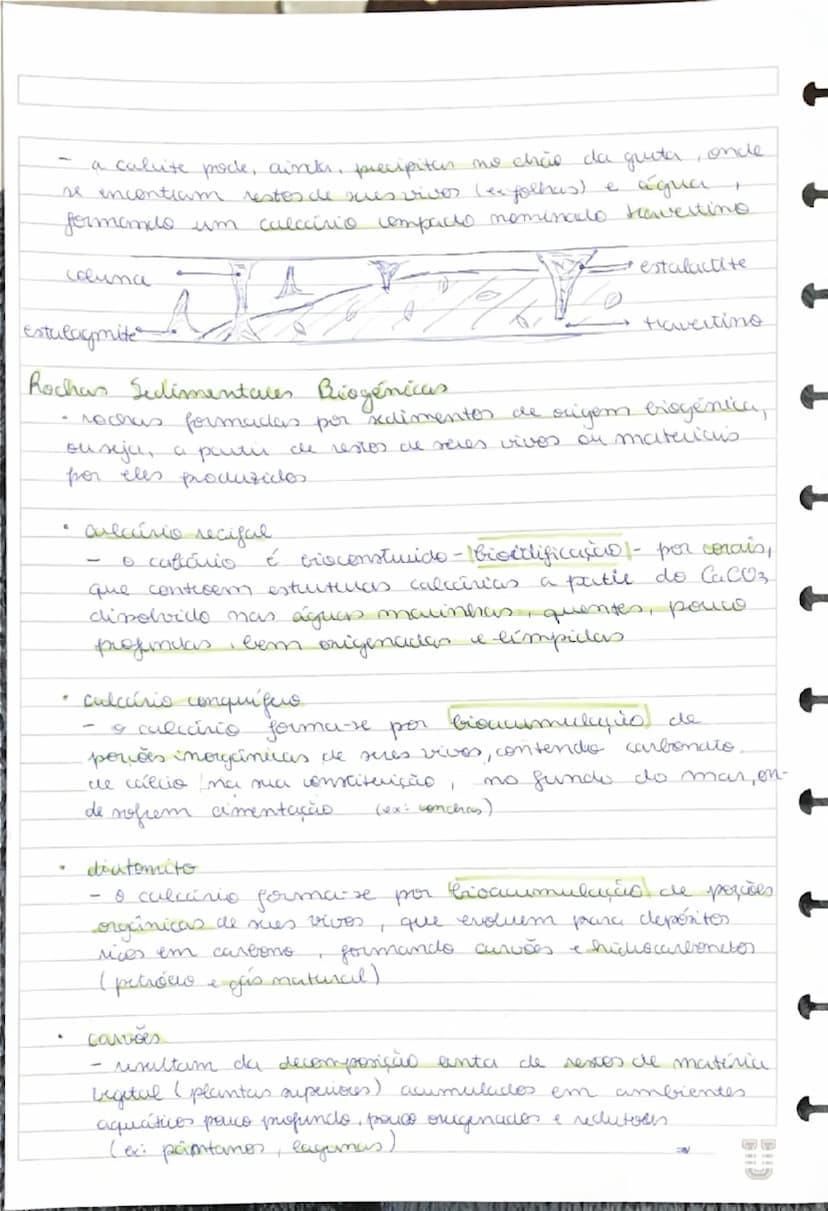 - a calcite pode, ainda, precipitar no chão da gruta, onde
se encontram restos de seres vivos (ex folhas) e água,
formando um calcário compacto nominado travertino
coluna
estalactite
estalagmite
travertino
Rochas Sedimentares Biogénicas
• rochas formadas por sedimentos de origem biogénica,
ou seja, a partir de restos de seres vivos ou materiais
por eles produzidos
• calcário recifal
- o calcário é bioconstruído - bioedificação - por corais,
que contróem estruturas calcárias a patir do CaCO3
dissolvido nas águas marinhas, quentes, pouco
profundas, bem oxigenadas e límpidas
• calcário conquífero
- o calcário forma-se por bioacumulação de
porções inorgânicas de seres vivos, contendo carbonato
de cálcio na sua constituição, no fundo do mar, on-
de sofrem cimentação (ex: conchas)
• diatomito
- o calcário forma-se por bioacumulação de porções
orgânicas de seres vivos, que evoluem para depósitos
ricos em carbono, formando carvões e hidrocarbonetos
(petróleo e gás natural)
• carvões
- resultam da decomposição lenta de restos de matéria
vegetal (plantas superiores) acumulados em ambientes
aquáticos pouco profundo, pouco oxigenados e redutores
(ex: pântanos, lagunas)